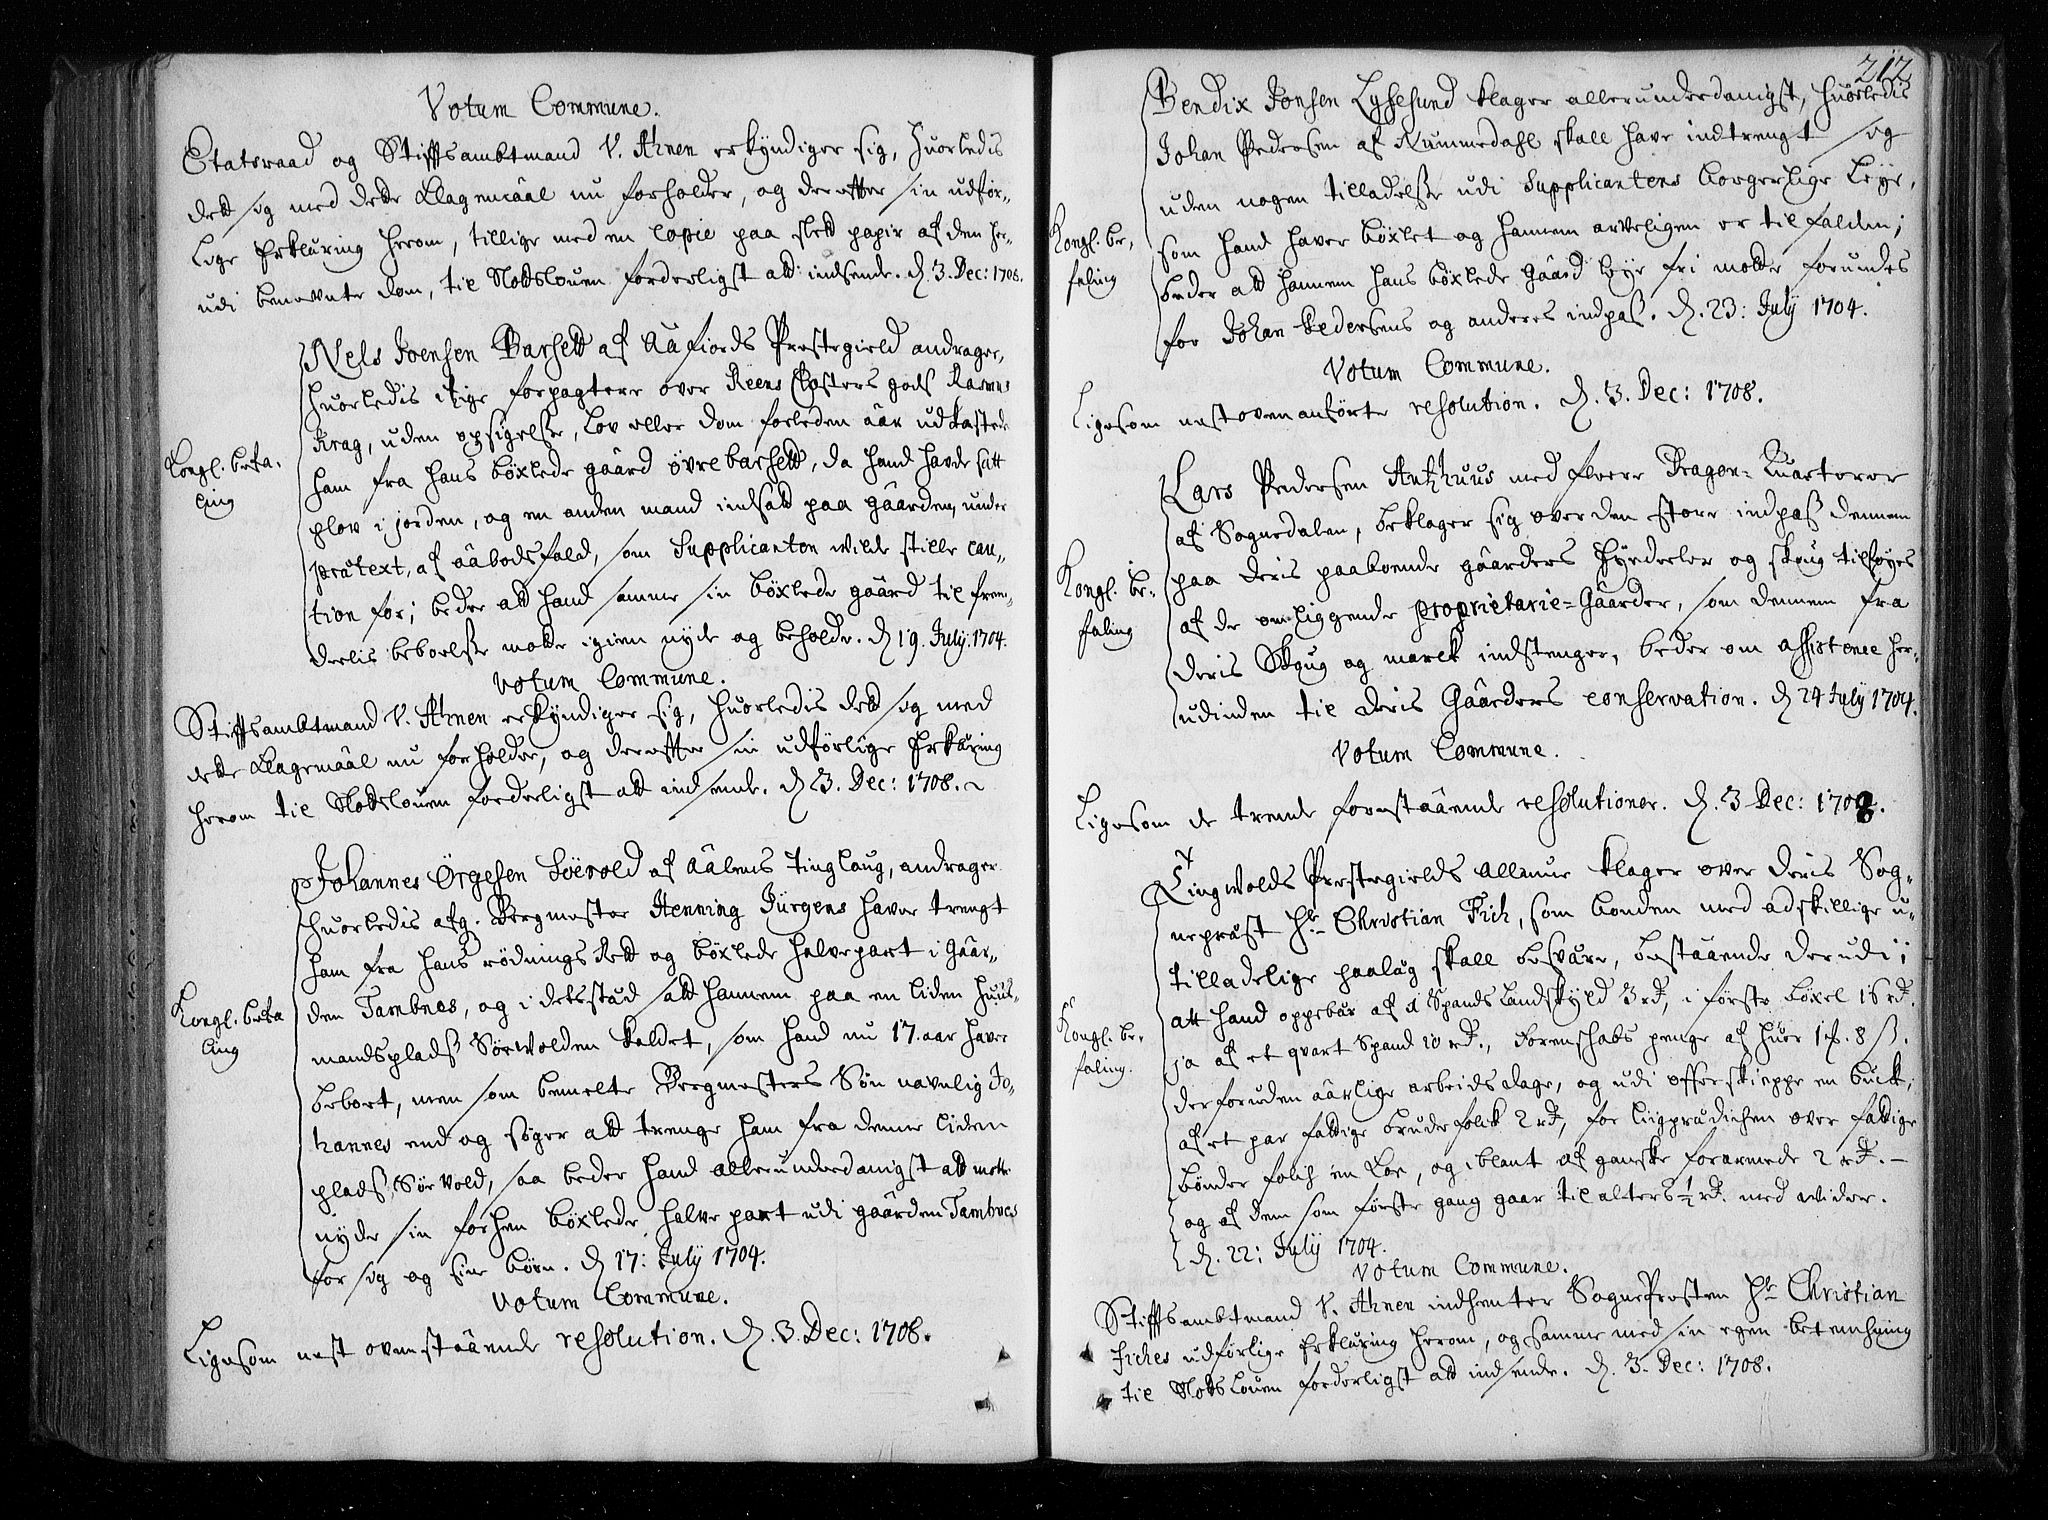 Votum Commune.
Etatsraad og Stiftsambtmand V. Ahnen erkyndiger sig, huorledis
dett sig med dette Klagemaal nu forholder, og derefter sin udför-
lige Erklæring herom, tillige med en Copie paa slet papir af den her-
udi benevnte dom, til Slottsloven forderligst at indsende. D. 3. Dec: 1708.
Kongl. befa-
ling
Nels Joensen Barsett af Aafiords Præstegield andrager,
huorledis itzige forpagtere over Reens Closters gods Rasmus
Krag, uden opsigelse, Lov eller dom forleden aar udkastede
ham fra hans böxlede gaard övre barsett, da hand havde satt
plov i jorden, og en anden mand indsatt paa gaarden, under
prætext, af aabodsfald, som Supplicanten wilde stille cau-
tion for; beder att hand samme sin böxlede gaard til frem-
deelis beboelse motte igien nyde og beholde. D 19. July. 1704.
Votum Commune.
Stiftsambtmand V. Ahnen erkyndiger sig, huorledis dett sig med
dette Klagemaal nu forholder, og derefter sin udförlige Erklæring
herom til Slottsloven forderligst att indsende. D 3. Dec: 1708.
Kongl. befa
ling
Johannes Örgesen Söevold af Aalens tinglaug, andrager
huorledis afg. Bergmester Henning Jürgens haver trengt
ham fra hans rödnings Rett og böxlede halvepart i Gaar-
den Tambnes, og i detsstæd satt hannem paa en liden huus-
mandsplads Sörwolden kaldet, som hand nu 17. aar haver
beboet, men som bemelte Bergmesters Sön navnlig Jo-
hannes end og söger att trenge ham fra denne liden
plads, Sörvold, saa beder hand allerunderdanigst att motte
nyde sin forhen böxlede halve part udi gaarden Tambnes
for sig og sine börn. D 17: July 1704.
Votum Commune.
Ligesom nest ovenstaaende resolution. D. 3. Dec: 1708.
212
Kongl. be-
faling
Bendix Jonsen Lysesund klager allerunderdanigst, huorledis
Johan Pedersen af Nummedahl skall have indtrengt sig
uden nogen tilladelse udi Supplicantens borgerlige Leye,
som hand haver böxlet og hannem arveligen er tilfalden;
beder att hannem hans böxlede gaard Leye fri motte forundes
for Johan Pedersens og anderes indpass. D. 23: July 1704.
Votum Commune.
Ligesom nest ovenanförte resolution. D. 3. Dec: 1708.
Kongl. be-
faling
Lars Pedersen Antzhuus med fleere Dragon-Quarterer
af Sognedalen, beklager sig over den store indpass dennem
paa deris paaboende gaarders Hyrdeeler og skoug tilföyes
af de omliggende proprietarie-Gaarder, som dennem fra
deris Skoug og marck indstenger, beder om assistence her-
udinden til deris Gaarders conservation. D 24 July 1704.
Votum Commune.
Ligesom de trende forestaaende resolutioner. D. 3 Dec: 1708.
Kongl. be-
faling.
Tingwolds Præstegields Allmue klager over deris Sog-
nepræst Hr. Christian Fich, som bonden med adskillige u-
tilladelige paalæg skall besvære, bestaaende derudi;
att hand oppebær af 1 Spands Landskyld 3 rd, i förste böxel 16 rd.
ja af et qvart Spand 10 rd., Forenskabs penge af huer 1 f. 8 ß.
der foruden aarlige arbeids dage, og udi offerskieppe en buck,
af et par fattige brudefolck 2 rd, for Liigprædichen over fattige
bönder folch en Koe, og iblant af ganske forarmede 2 rd. -
og af dem som förste gang gaar til alters ½ rd. med widere.
D. 22: July 1704.
Votum Commune.
Stiftsambtmand V. Ahnen indhenter SognePresten Hr. Christian
Fiches udförlige Erklæring herom, og samme med sin egen betenchning
til Slottsloven forderligst att indsende. D. 3. Dec: 1708.